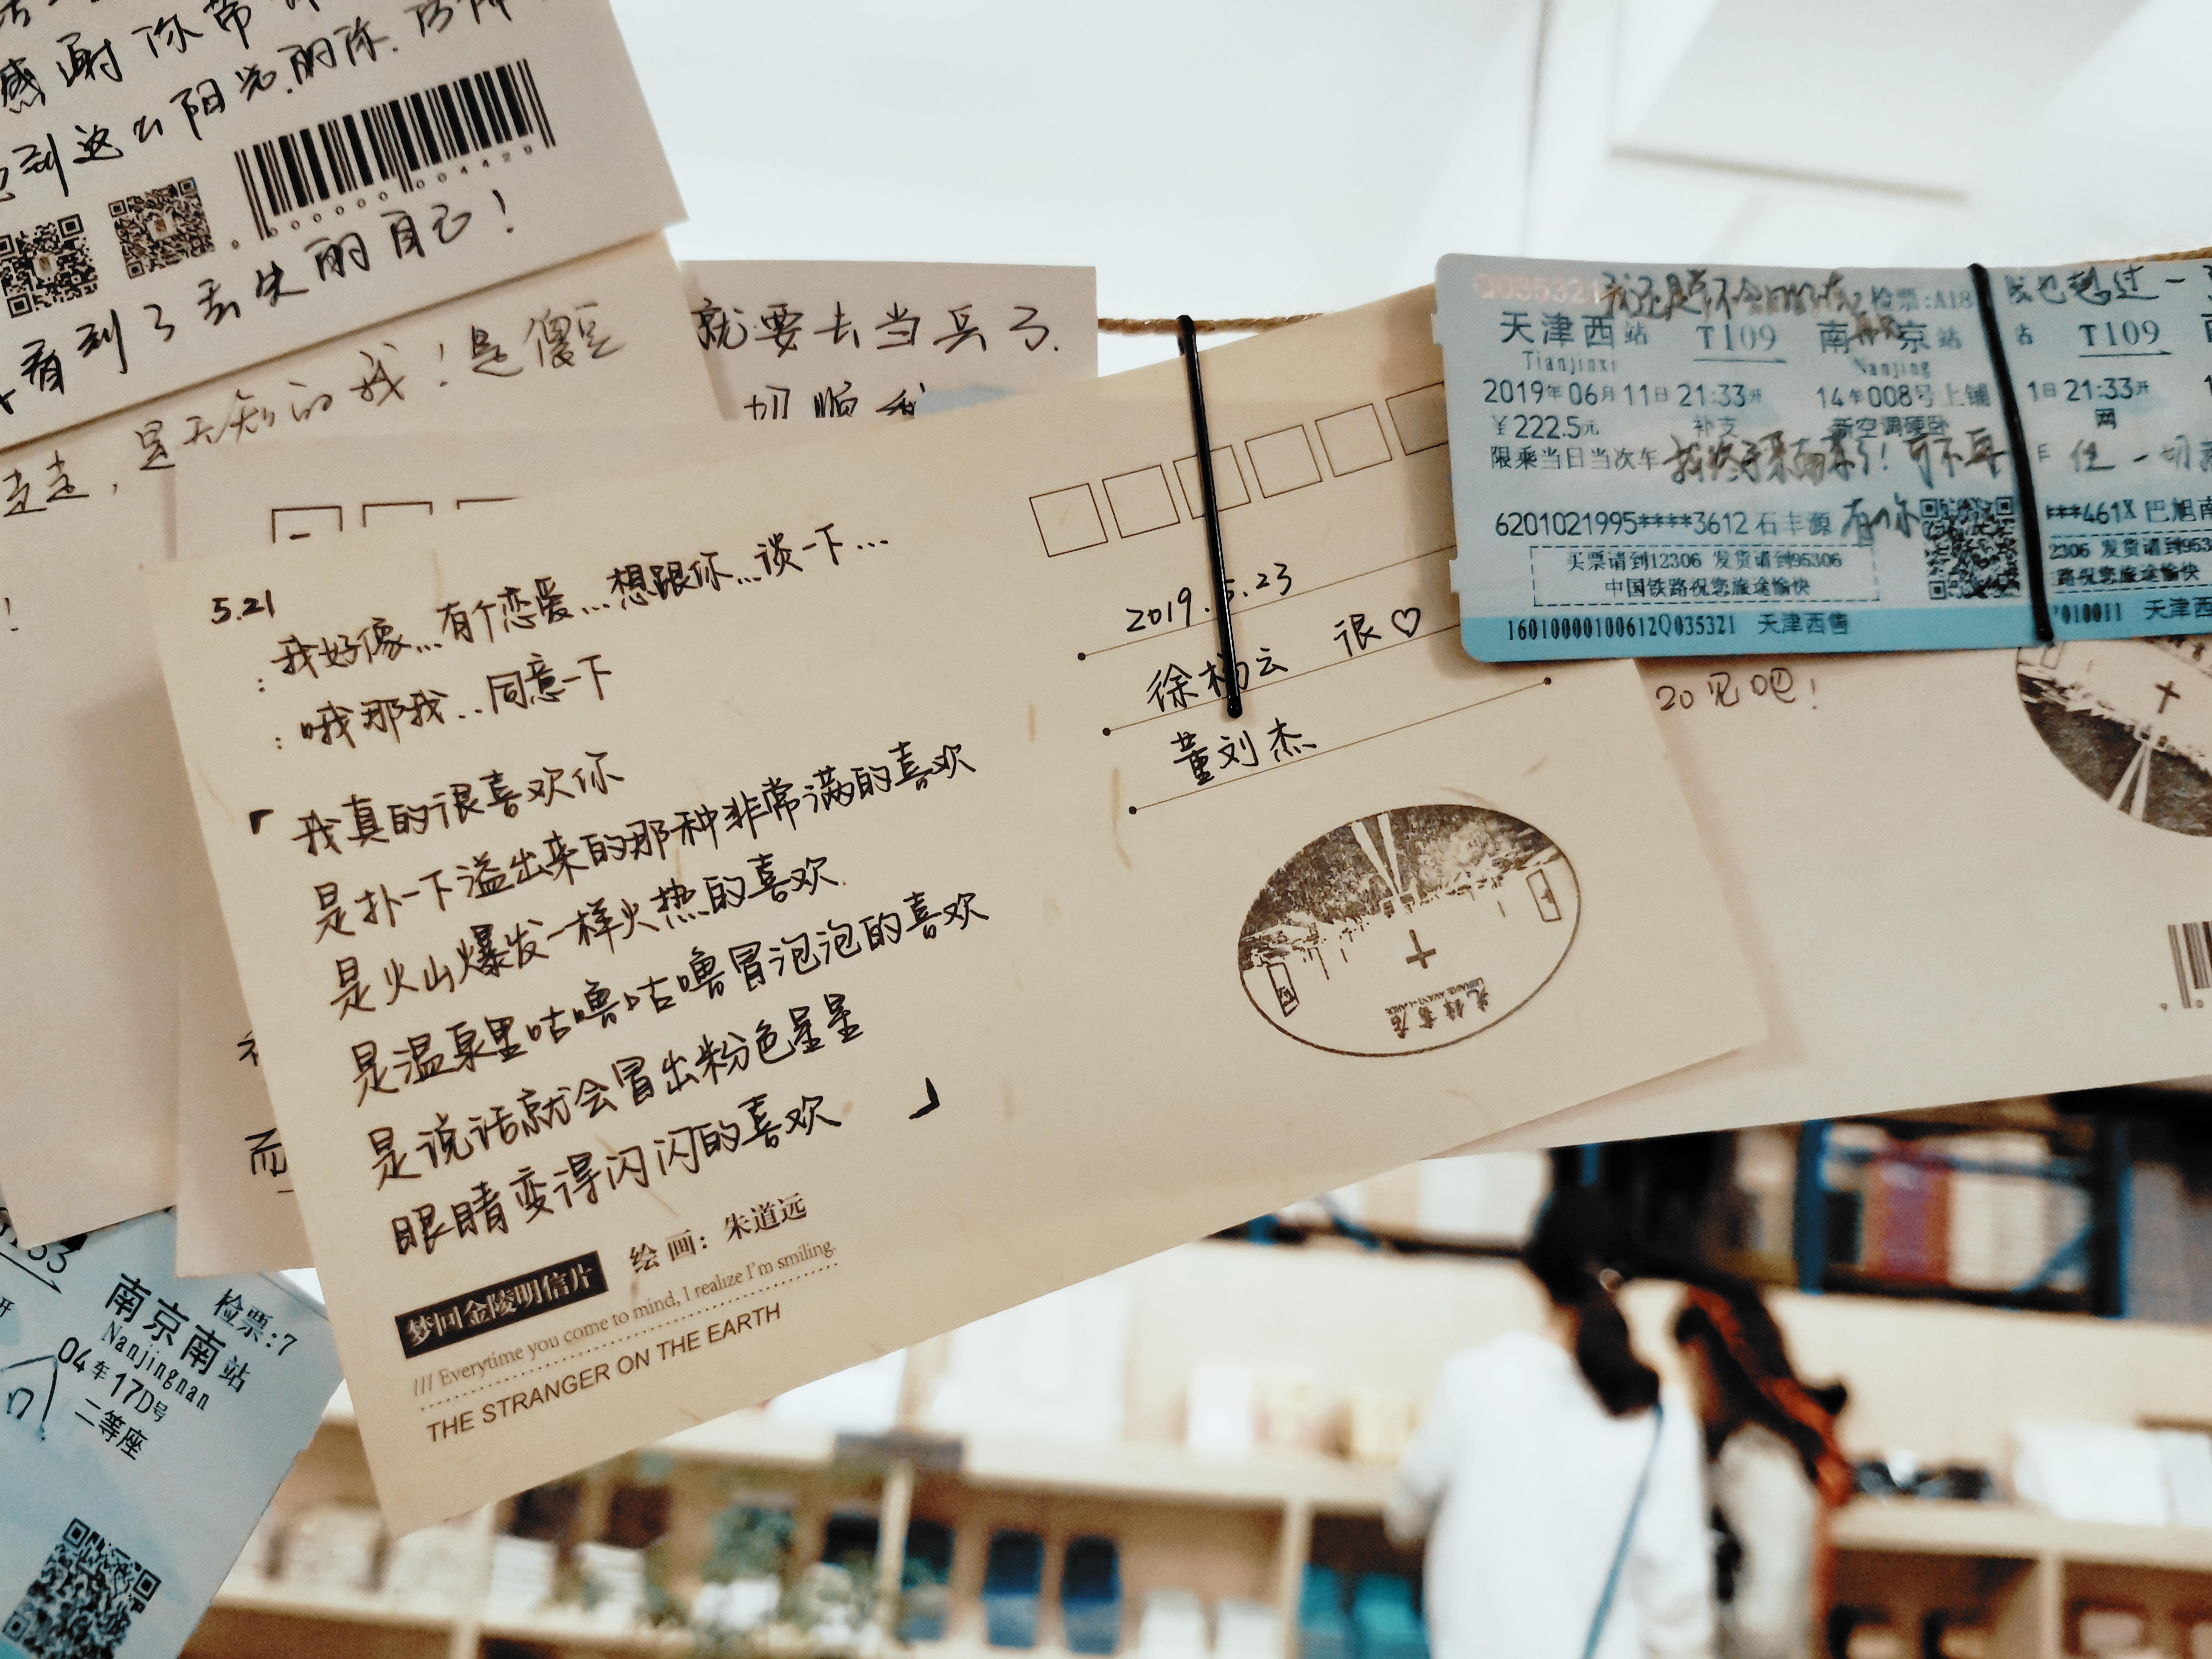 感谢你带
到这么阳光的你.
000000004429
看到了丢失的自己！
走走，是无知的我！是傻豆
就要去当兵了.
切顺
5.21
：我好像...有个恋爱...想跟你...谈一下...
：哦那我...同意一下
「我真的很喜欢你
是扑一下溢出来的那种非常满的喜欢
是火山爆发一样火热的喜欢
是温泉里咕噜咕噜冒泡泡的喜欢
是说话就会冒出粉色星星
眼睛变得闪闪的喜欢」
绘画：朱道远
梦回金陵明信片
/// Everytime you come to mind, I realize I'm smiling.
THE STRANGER ON THE EARTH
2019.5.23
徐杨云 很♡
董刘杰
先锋书店
Q035321 检票:A18
天津西站 T109 南京站
Tianjinxi Nanjing
2019年06月11日21:33开 14车008号上铺
￥222.5元 新空调硬卧
限乘当日当次车
我终于来南京了！可不再
有你
6201021995****3612 石丰源
买票请到12306 发货请到95306
中国铁路祝您旅途愉快
16010000100612Q035321 天津西售
我也趟过一
站 T109
1日21:33开
网
住一切
***461X 巴旭南
2306 发货请到953
路祝您旅途愉快
010011 天津西
20见吧！
而
检票:7
南京南站
Nanjingnan
04车17D号
二等座